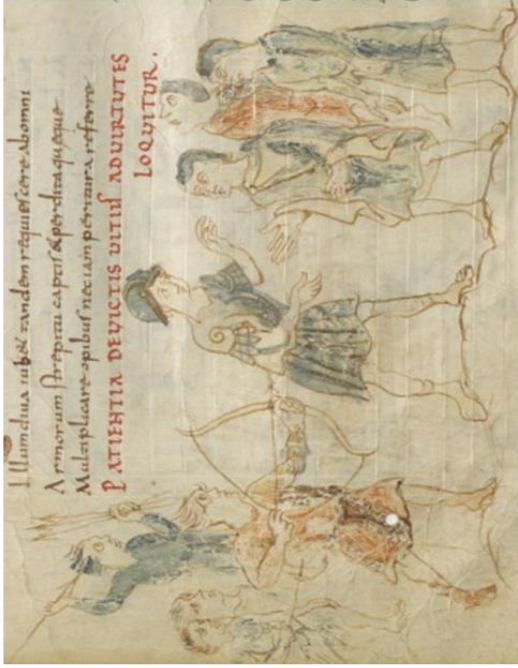 Illum diua iubet tandem requiescere abomni
Armorum strepitu captis & perditaquęque
Multiplicare opibus nec iam peritura referre
PATIENTIA DEVICTIS VITIIS ADVIRTVTES
LOQVITVR.